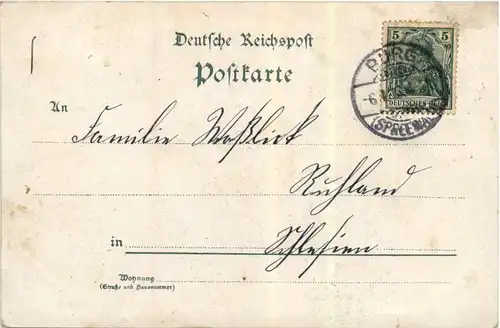 Deutsche Reichspost
Postkarte
5 5
BURG
(SPREEWALD)
DEUTSCHES REICH
An
Familie Woßlick
Ruhland
in Schlesien
Wohnung
(Straße und Hausnummer)